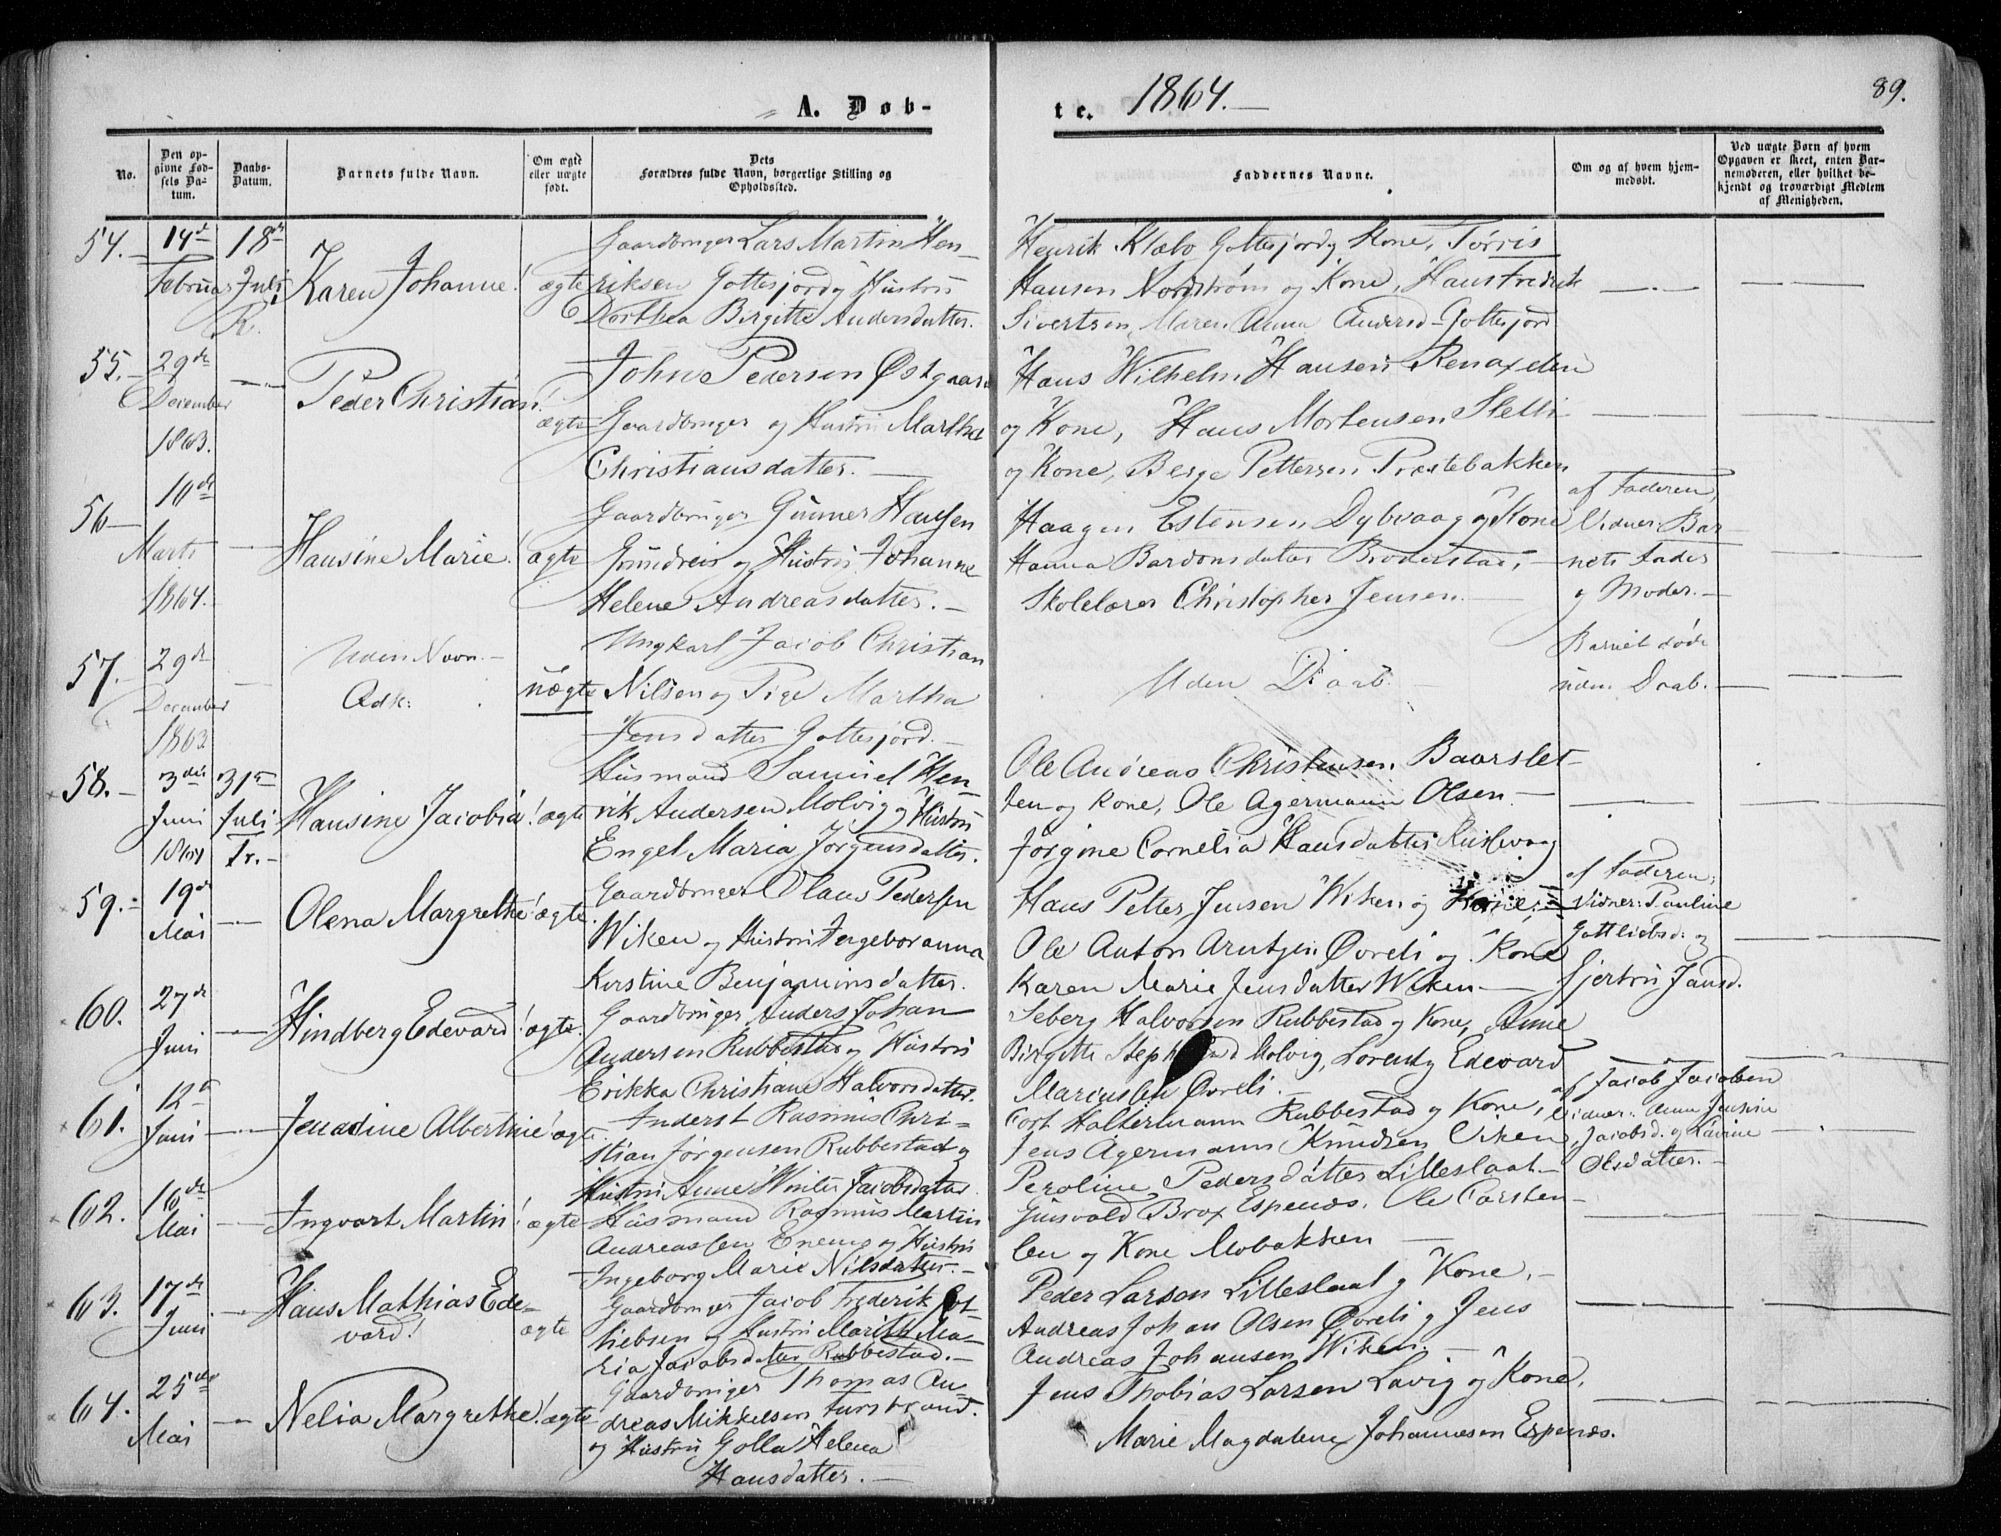 A. Døb-
te. 1864.
89.
No.
Den op-
givne Fød-
sels Da-
tum.
Daabs-
Datum.
Barnets fulde Navn.
Om ægte
eller uægte
født.
Dets
Forældres fulde Navn, borgerlige Stilling og
Opholdssted.
Faddernes Navne.
Om og af hvem hjem-
medøbt.
Ved uægte Børn af hvem
Opgaven er skeet, enten Bar-
nemoderen, eller hvilket be-
kjendt og troværdigt Medlem
af Menigheden.
54.
14de
Februar
18de
Juli
R.
Karen Johanne!
ægte
Gaardbruger Lars Martin Hen-
riksen Gottesjord og Hustru
Dorthea Birgitte Andersdatter.
Henrik Klæbo Gottesjord og Kone,
Hansen Nordstrøm og Kone, Hans Fredrik
Sivertsen, Maren Anna Andersd. Gottesjord
55.
29de
December
1863.
Peder Christian!
ægte
John Pedersen Østgaard
Gaardbruger og Hustru Martha
Christiansdatter.
Hans Wilhelm Hansen Renaxelen
og Kone, Hans Mortensen Sletli
og Kone, Berge Pettersen Præstebakken
56
10de
Marts
1864.
Hansine Marie!
ægte
Gaardbruger Gunner Hansen
Grundreis og Hustru Johanne
Helene Andreasdatter.
Haagen Estensen Dybvaag og Kone
Hanna Bardonsdatter Broderstad,
Skolelærer Christopher Jensen.
af Faderen,
Vidner: Bar
nets Fader
og Moder.
57.
29de
December
1863
Uden Navn.
Adk:
uægte
Ungkarl Jacob Christian
Nilsen og Pige Martha
Jensdatter Gottesjord.
Uden Daab.
Barnet døde
uden Daab.
58.
3die
Juni
1864
31te
Juli
Tr.
Hansine Jacobia!
ægte
Husmand Samuel Hen-
rik Andersen Molvig og Hustru
Engel Maria Jørgensdatter.
Ole Andreas Christensen Baarslet-
ten og Kone, Ole Agermann Olsen
Jørgine Cornelia Hansdatter
59.
19de
Mai
Olena Margrethe!
ægte.
Gaardbruger Olaus Pedersen
Wiken og Hustru Ingeboranna
Kirstine Benjaminsdatter.
Hans Petter Jensen Wiken og Kone,
Ole Anton Arntzen Øvreli og Kone
Karen Marie Jensdatter Wiken
af Faderen,
Vidner: Pauline
Gottliebsd: og
60.
27de
Juni
Hindberg Edevard!
ægte.
Gaardbruger Anders Johan
Andersen Rubbestad og Hustru
Erikka Christiane Halvorsdatter.
Seberg Halvorsen Rubbestad og Kone, Anne
Birgitte Molvig, Lorentz Edevard
Øvreli.
61.
12te
Juni
Jenadine Albertine!
ægte.
Inderst Rasmus Chri-
stian Jørgensen Rubbestad og
Hustru Anne Winter Jacobsdatter
Cort Haltermann Rubbestad og Kone,
Jens Agermann Knudsen Viken,
Peroline Pedersdatter Lilleslaat
af Jacob Jacobsen
Vidner: Anna
Jacobsd. og
Olsdatter.
62.
16de
Mai
Ingvart Martin!
ægte
Husmand Rasmus Martin
Andreassen og Hustru
Ingeborg Marie Nilsdatter.
Brox Espenæs, Ole Carsten-
sen og Kone Mobakken
63.
17de
Juni
Hans Mathias Ede-
vard!
ægte
Gaardbruger Jacob Frederik Got-
liebsen og Hustru Marith Ma-
ria Jacobsdatter Rubbestad.
Peder Larsen Lilleslaat og Kone,
Andreas Johan Olsen Øvreli og Jens
Andreas Johansen Wiken.
64.
25de
Mai
Nelia Margrethe!
ægte
Gaardbruger Thomas An-
dreas Mikkelsen
og Hustru Golla Helena
Hansdatter.
Jens Thobias Larsen Lavig og Kone,
Marie Magdalene Johannesen Espenæs.